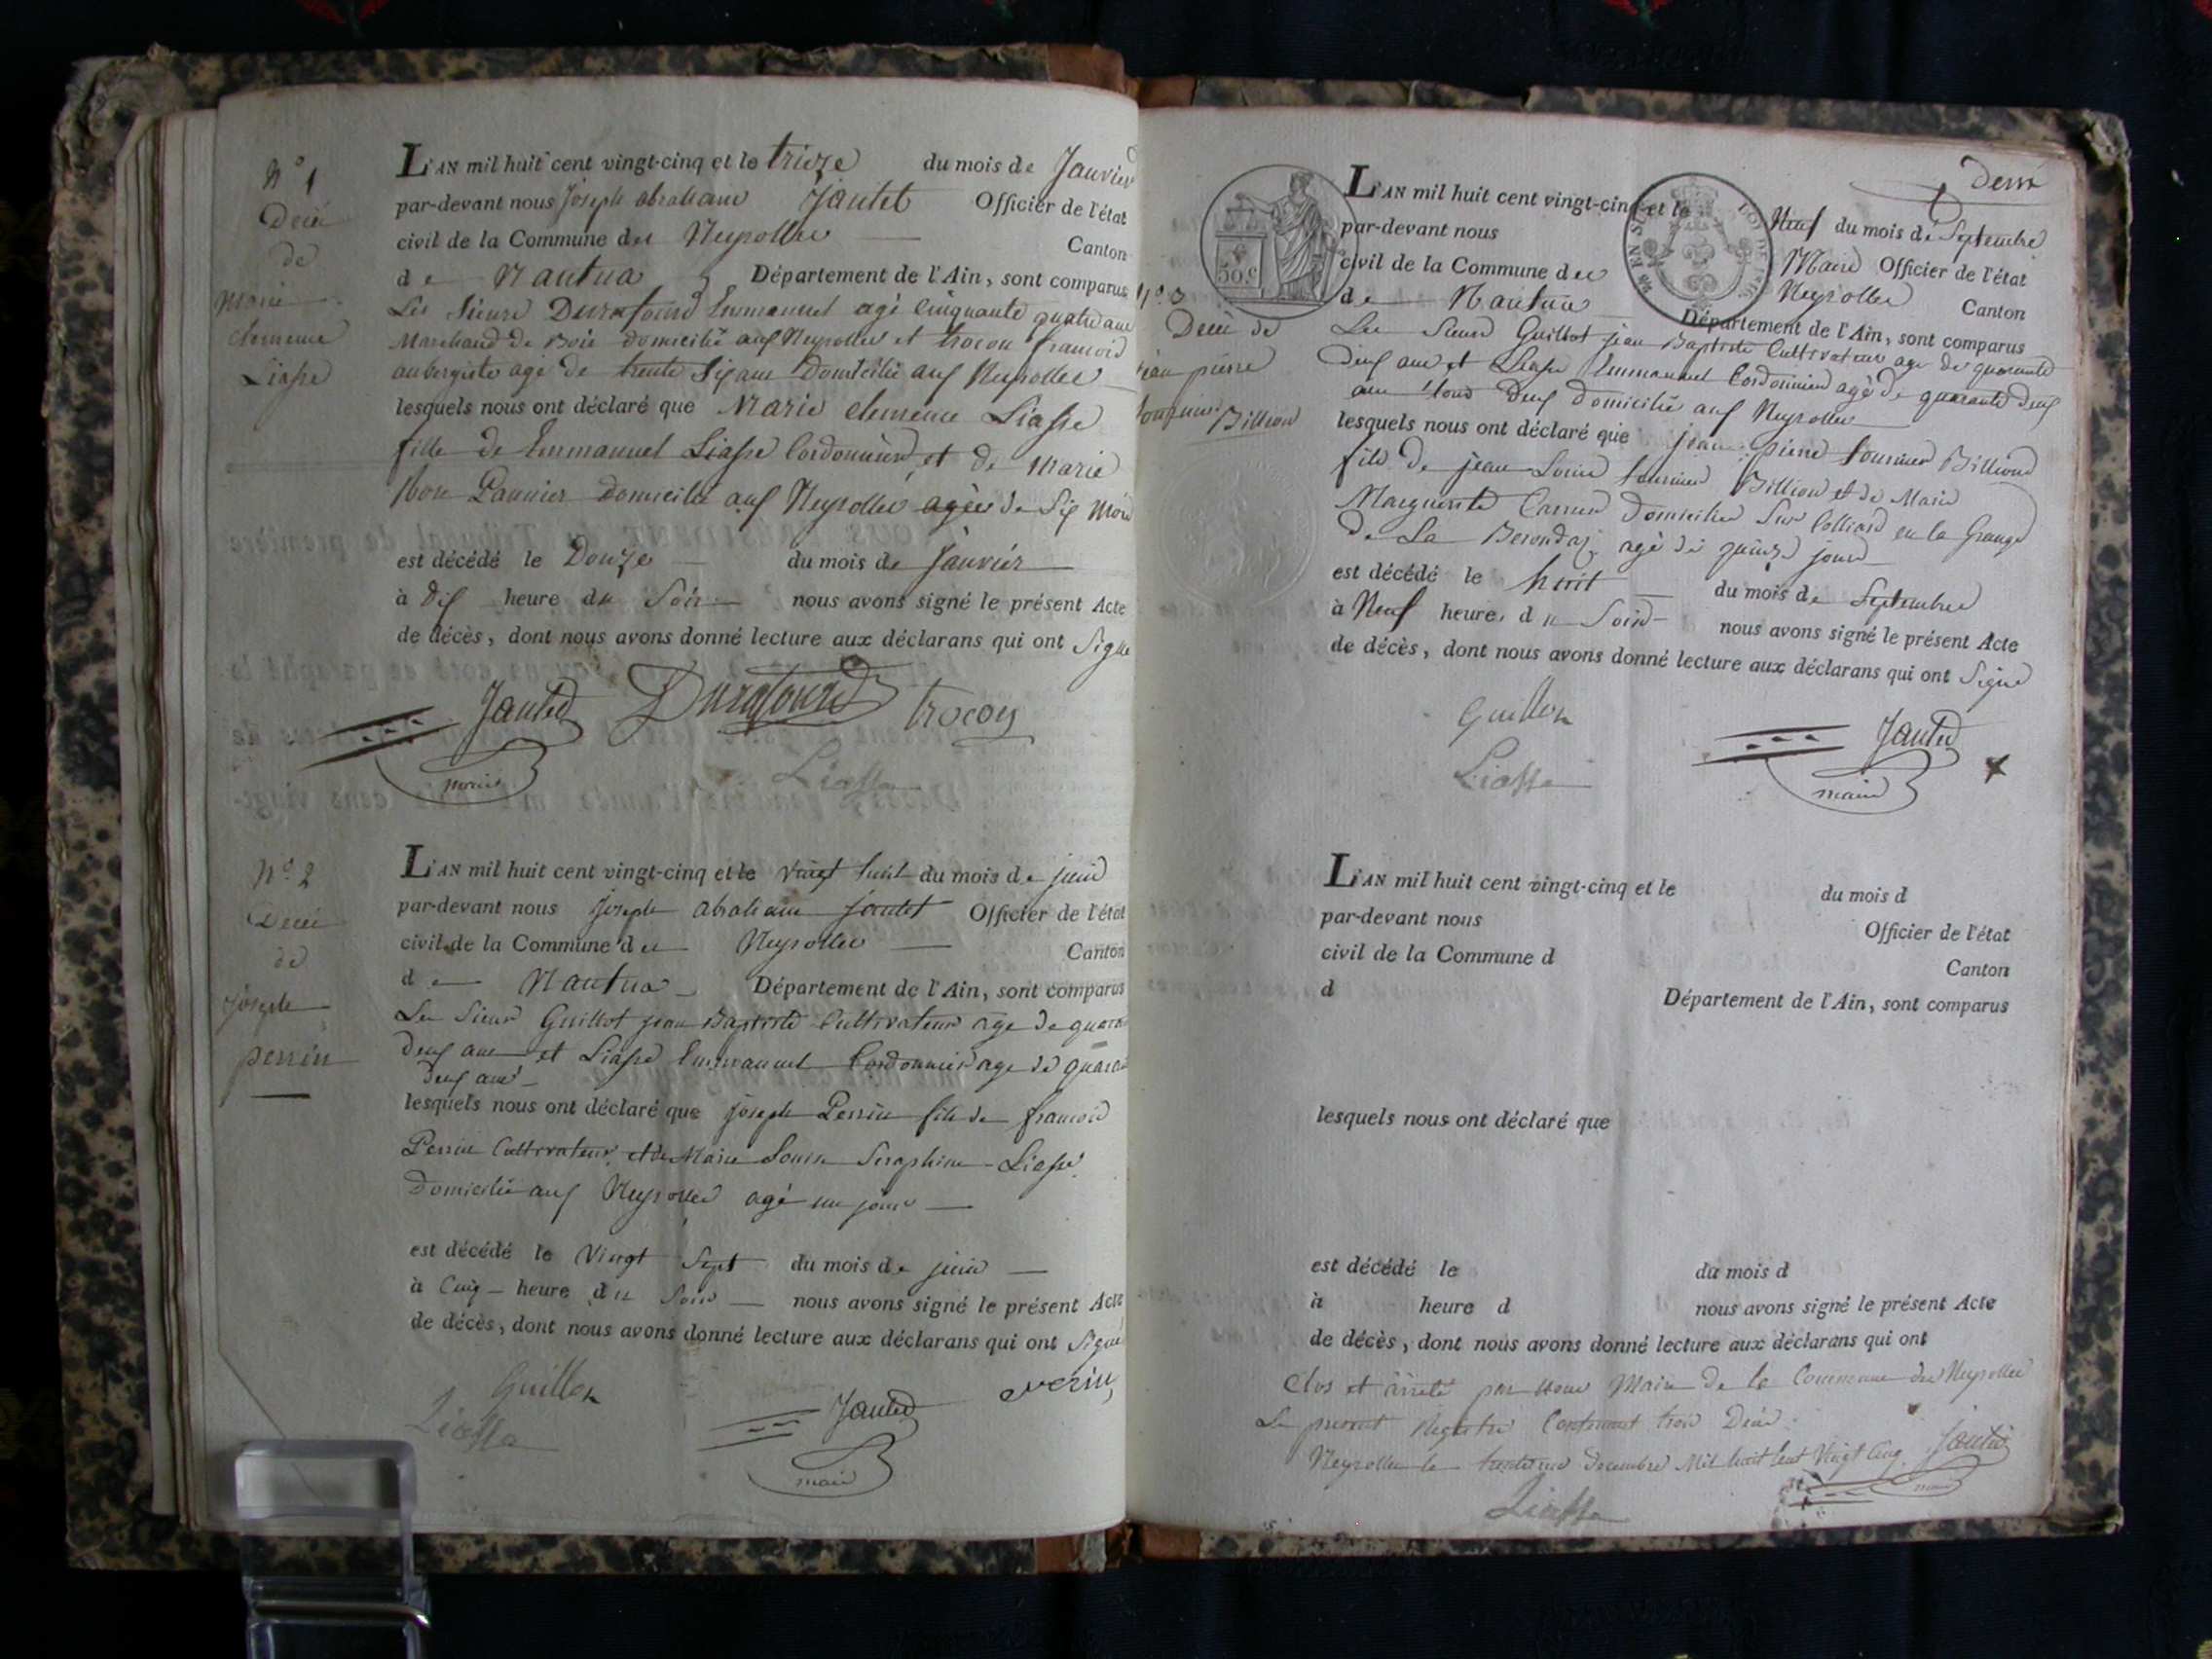 N° 1
Décè
de
Marie
clemence
Liasse
L'AN mil huit cent vingt-cinq et le trieze du mois de Janvier
par-devant nous Joseph abraham Jantet Officier de l'état
civil de la Commune des Neyrolles Canton
de Nantua Département de l'Ain, sont comparus
Les Sieurs Durafourd Emmanuel agé cinquante quatre ans
Marchand de Bois domicilié aux Neyrolles et trocon francois
aubergiste agé de trente six ans domicilié aux Neyrolles
lesquels nous ont déclaré que Marie clemence Liasse
fille de Emmanuel Liasse Cordonnier et de Marie
domicilié aux Neyrolles agée de six mois
est décédé le Douze du mois de janvier
à dix heure du Soir nous avons signé le présent Acte
de décès, dont nous avons donné lecture aux déclarans qui ont Signé
Jantet Durafourd trocon
maire
Liasse
N° 2
Décè
de
joseph
perrin
L'AN mil huit cent vingt-cinq et le vingt huit du mois de juin
par-devant nous joseph abraham jantet Officier de l'état
civil de la Commune des Neyrolles Canton
de Nantua Département de l'Ain, sont comparus
Les Sieurs Guillot jean Baptiste Cultivateur age de quarante
deux ans et Liasse Emmanuel Cordonnier age de quarante
deux ans
lesquels nous ont déclaré que joseph Perrin fils de francois
Perrin Cultivateur et de Marie Louise Seraphine Liasse
domicilié aux Neyrolles agé un jour
est décédé le Vingt Sept du mois de juin
à Cinq heure du Soir nous avons signé le présent Acte
de décès, dont nous avons donné lecture aux déclarans qui ont Signé
Guillot
Liasse
Jantet
maire
50 c
Neuf
L'AN mil huit cent vingt-cinq et le Neuf du mois de Septembre
par-devant nous Maire Officier de l'état
civil de la Commune des Neyrolles Canton
de Nantua Département de l'Ain, sont comparus
N° 3
Décè de
jean pierre
Billion
Les Sieurs Guillot jean Baptiste Cultivateur age de quarante
deux ans et Liasse Emmanuel Cordonnier agé de quarante deux
ans tous deux domicilié aux Neyrolles
lesquels nous ont déclaré que jean pierre tournier Billiond
fils de jean Louis tournier Billion et de Marie
Marguerite domicilié Sur Colliard en la Grange
de La agé de quinze jours
est décédé le huit du mois de Septembre
à Neuf heure du Soir nous avons signé le présent Acte
de décès, dont nous avons donné lecture aux déclarans qui ont Signé
Guillot
Liasse
Jantet
maire
L'AN mil huit cent vingt-cinq et le du mois d
par-devant nous Officier de l'état
civil de la Commune d Canton
d Département de l'Ain, sont comparus
lesquels nous ont déclaré que
est décédé le du mois d
à heure d nous avons signé le présent Acte
de décès, dont nous avons donné lecture aux déclarans qui ont
Clos et arreté par nous Maire de la Commune des Neyrolles
Le present Registre Contenant trois Décè
Neyrolles le decembre Mil huit Cent Vingt Cinq. Jantet
maire
Liasse